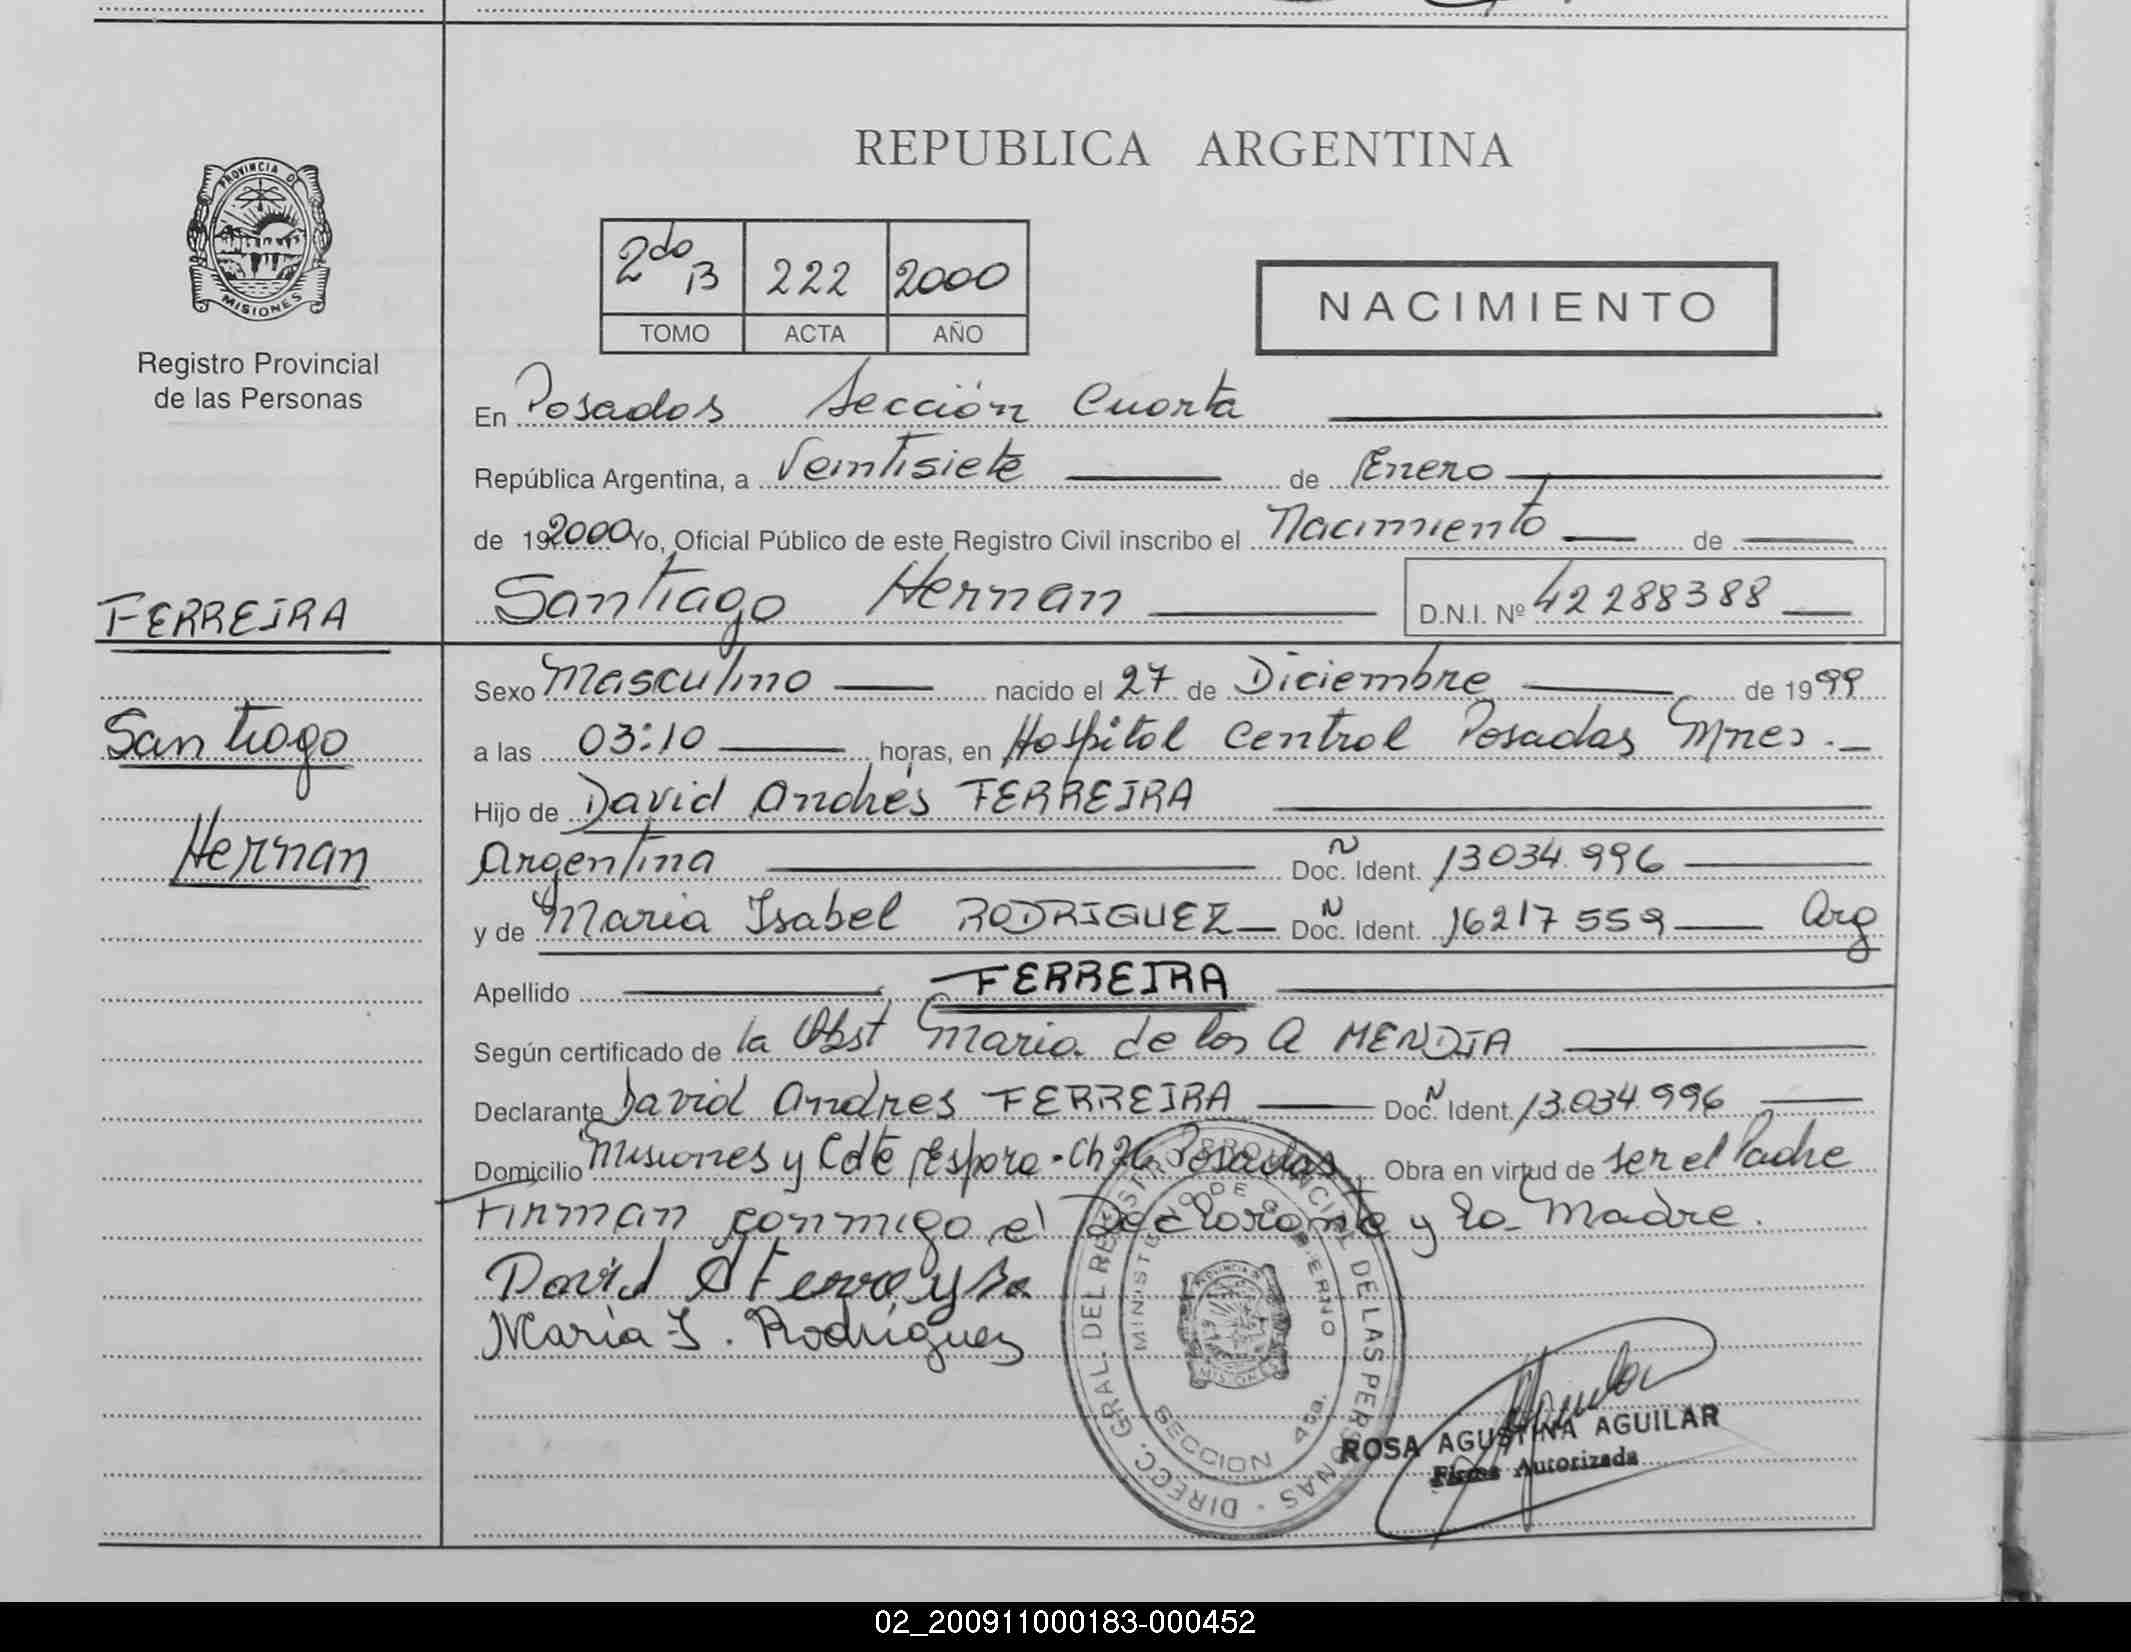 REPUBLICA ARGENTINA
PROVINCIA DE
MISIONES
Registro Provincial
de las Personas
2do B 222 2000
TOMO ACTA AÑO
NACIMIENTO
En Posadas Sección Cuarta
República Argentina, a Veintisiete de Enero
de 19 2000 Yo, Oficial Público de este Registro Civil inscribo el Nacimiento de
Santiago Hernan D.N.I. Nº 42288388
FERREIRA
Santiago
Hernan
Sexo Masculino nacido el 27 de Diciembre de 1999
a las 03:10 horas, en Hospital Central Posadas Mnes.
Hijo de David Andrés FERREIRA
Argentina Doc. N Ident. 13034.996
y de Maria Isabel RODRIGUEZ Doc. N Ident. 16217559 Arg
Apellido FERREIRA
Según certificado de la Obst Maria de los A MENDIA
Declarante David Andres FERREIRA Doc. N Ident. 13.034.996
Domicilio Misiones y Cdte Espora - Ch 26 Posadas Obra en virtud de ser el Padre
Firman conmigo el Declarante y la Madre.
David A Ferreyra
Maria I. Rodriguez
DIRECC. GRAL. DEL REGISTRO PROVINCIAL DE LAS PERSONAS
MINISTERIO DE GOBIERNO
SECCION 4ta.
PROVINCIA DE
MISIONES
ROSA AGUSTINA AGUILAR
Firma Autorizada
02_200911000183-000452